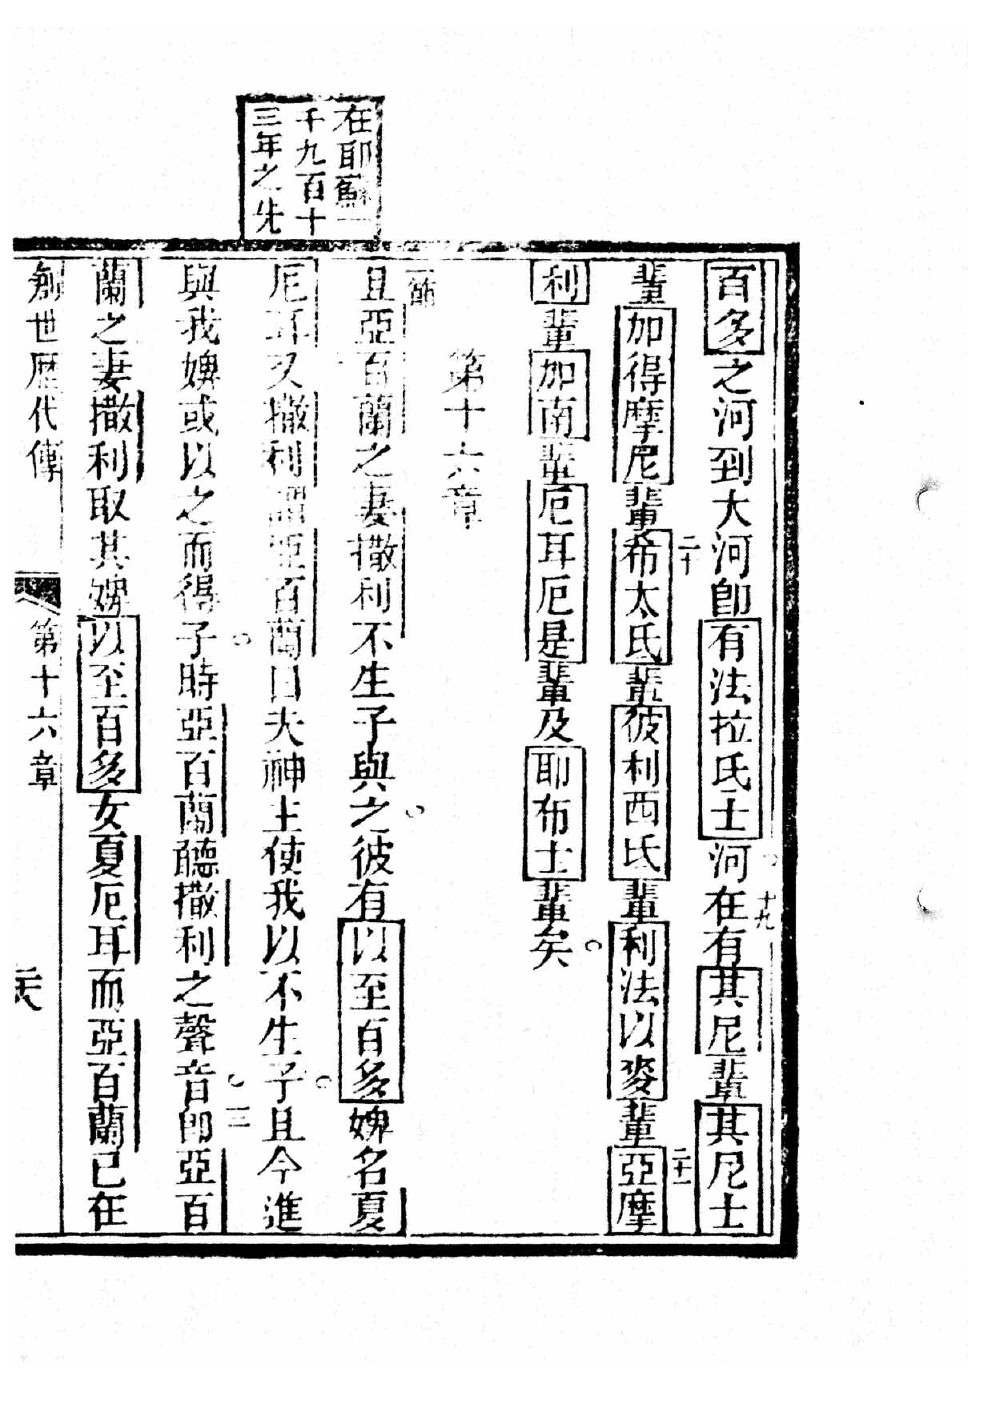 在耶蘇一
千九百十
三年之先
百多之河到大河卽有法拉氏士河在有其尼輩其尼士
十九
輩加得摩尼輩希太氏輩彼利西氏輩利法以麥輩亞摩
二十
二十一
利輩加南輩厄耳厄是輩及耶布士輩矣
第十六章
一節
且亞百蘭之妻撒利不生子與之彼有以至百多婢名夏
厄耳又撒利謂亞百蘭曰夫神主使我以不生子且今進
與我婢或以之而得子時亞百蘭聽撒利之聲音卽亞百
三
蘭之妻撒利取其婢以至百多女夏厄耳而亞百蘭已在
創世歷代傳
第十六章